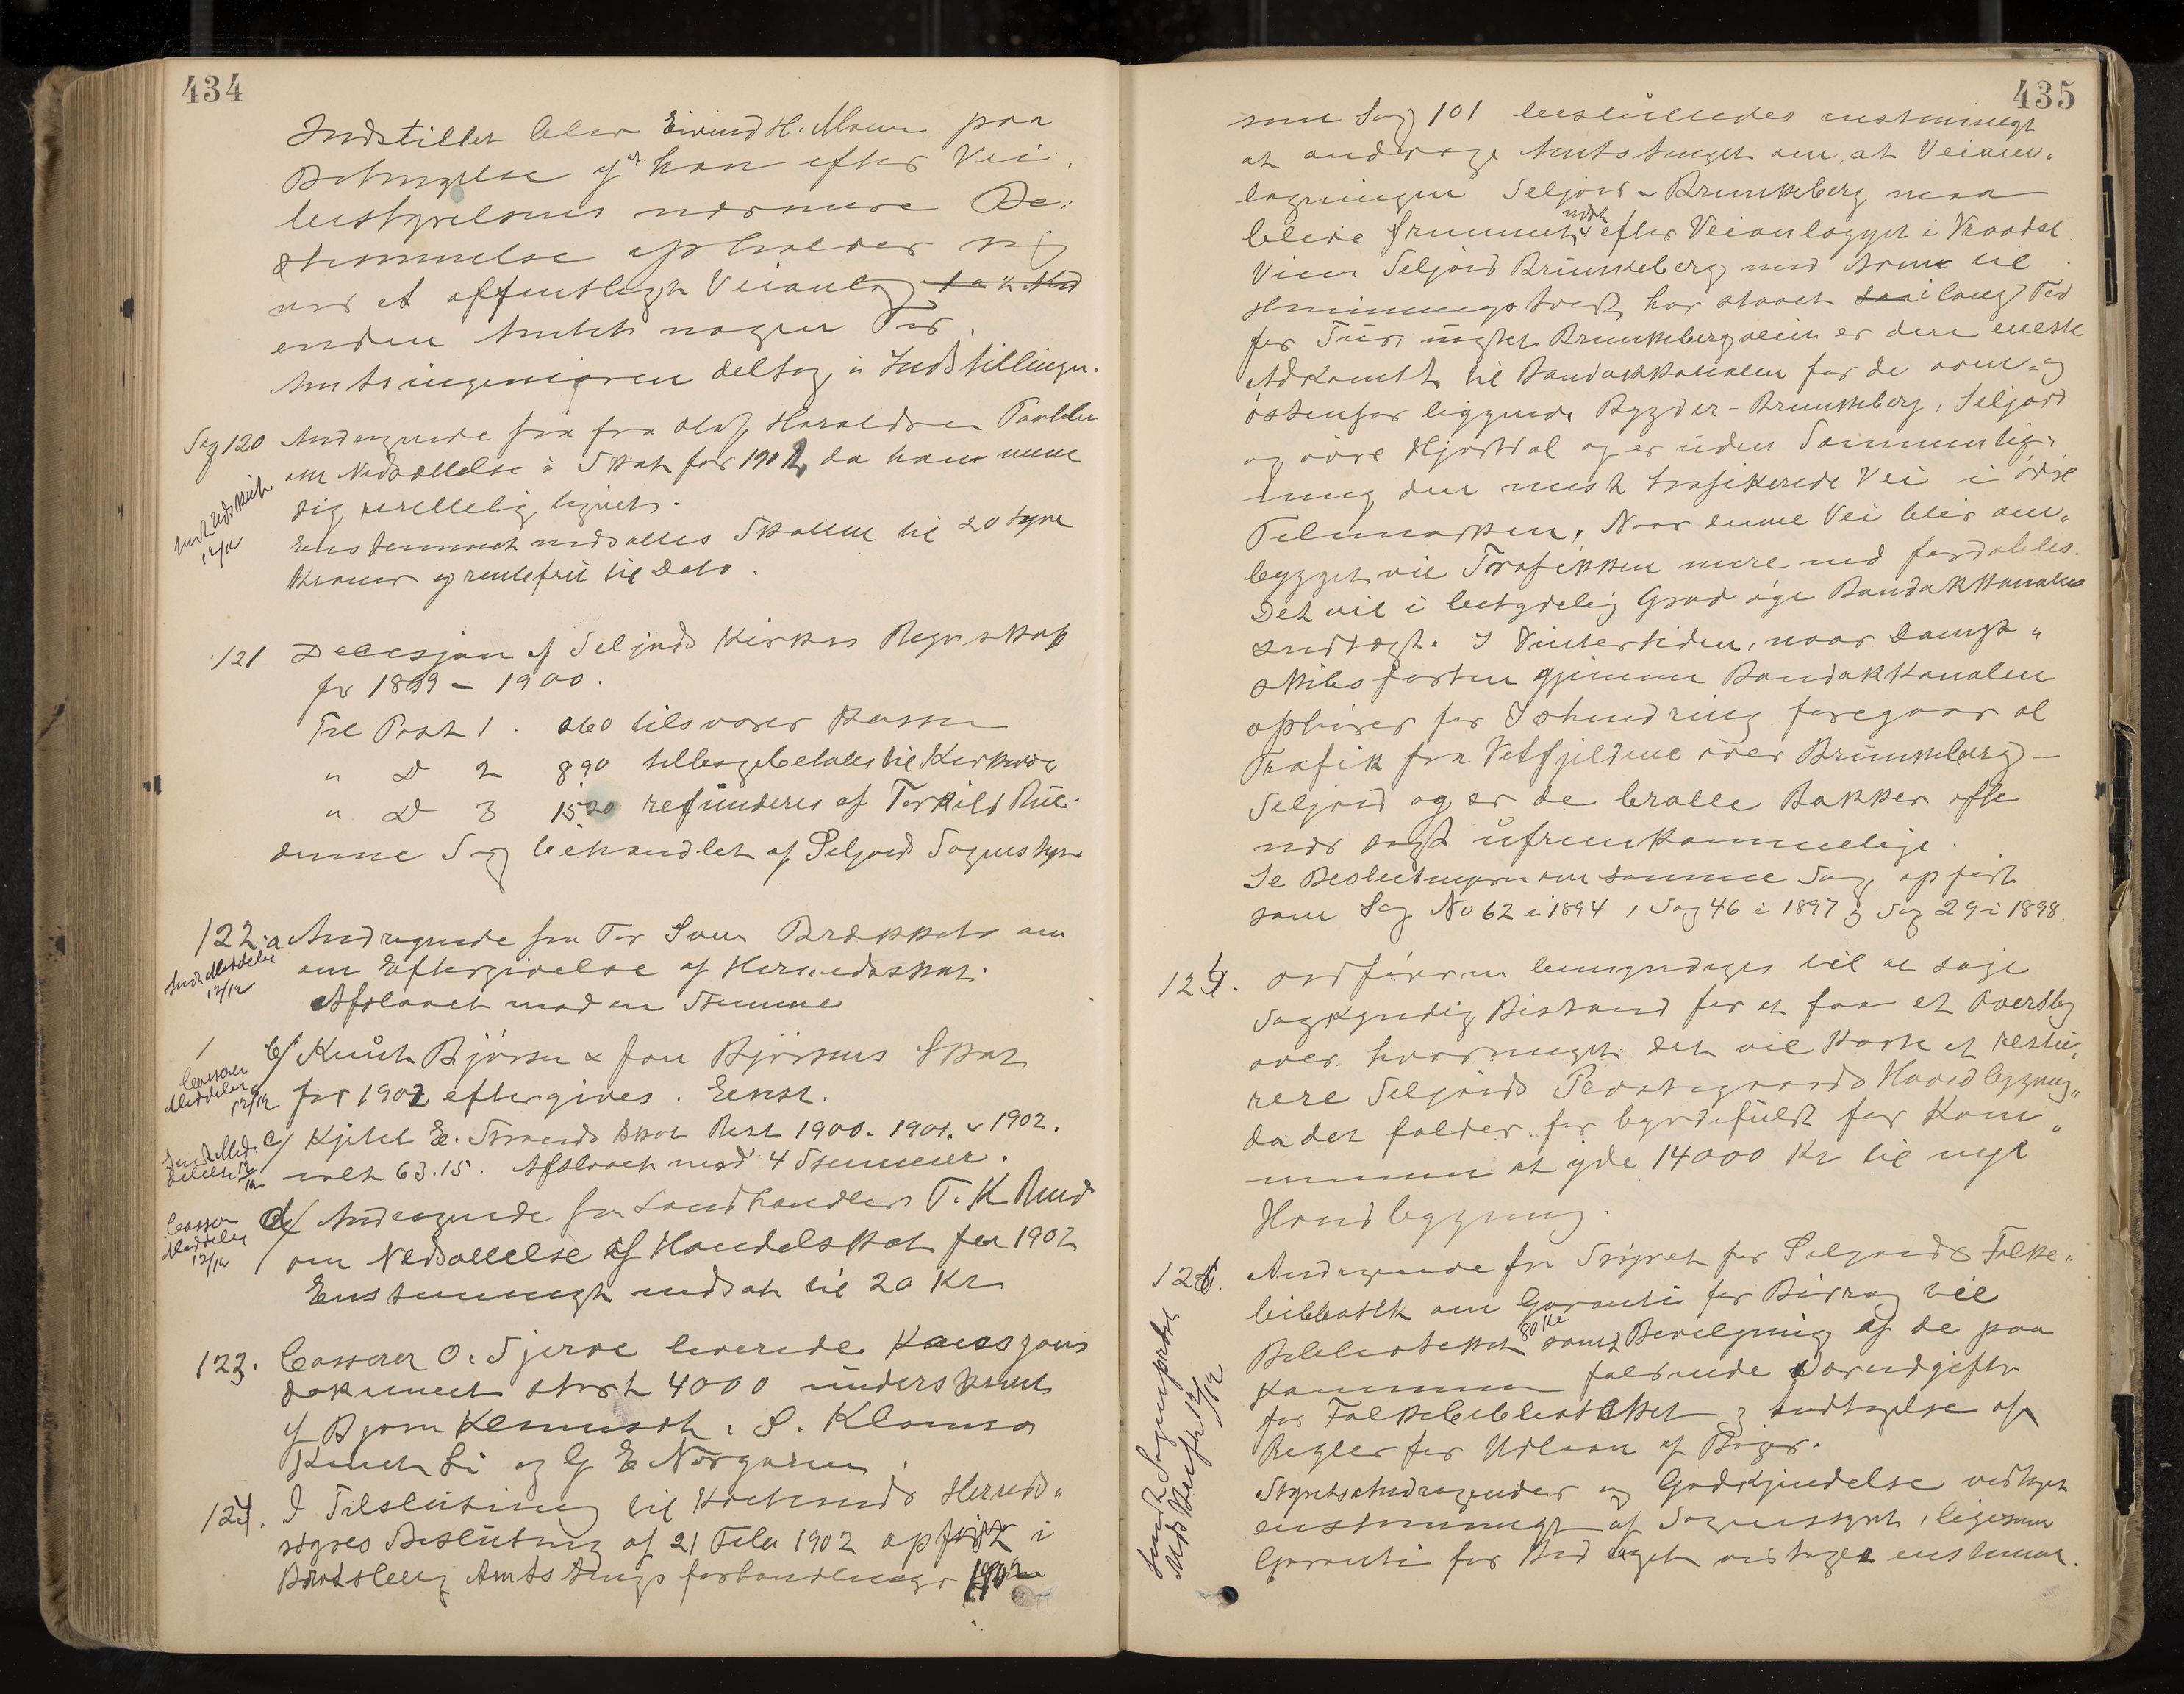 434
Indstillet blev Eivind H. Moen paa
Betingelse af at han efter Vei
bestyrelsens nærmere Be-
stemmelse opholder sig
ved et offentligt Veianlæg
enden Amtets nogen Tid.
Amtsingeniøren deltog i Indstillingen.
Sag 120 Andragende fra Olaf Haraldsen
om Nedsættelse i Skat for 1902, da han mene
sig urettelig lignet.
Enstemmet nedsattes Skatten til 20 tyve
Kroner og rentefrit til Dato.
Sendt Udskrift
12/12
121 Decisjon af Seljords Kirkes Regnskab
for 1899 - 1900.
Til Post 1. 260 tilsvarer Kassen
" D 2 890 tilbagebetales til Kirkeværge
" D 3 1520 refunderes af Torkild Rue.
denne Sag behandlet af Seljord Sognestyre
122.a Andragende fra Tor Svens Brækketo om
om Eftergivelse af Herredsskat.
Afslaaet mod en Stemme
Sendt Meddelelse
12/12
b/ Knut Bjørsen & Jon Bjørsens Skat
for 1902 eftergives. Enst.
Casserer
Meddeles
12/12
c/ Kjetil E. Strands Skat Rest 1900. 1901. & 1902.
ialt 63.15. Afslaaet mod 4 Stemmer.
Sendt Med-
delelse 12/12
d/ Andragende fra Landhandler T. K Rud
om Nedsættelse af Handelsskat for 1902
Enstemmigt nedsat til 20 Kr
Casserer
Meddeles
12/12
123. Casserer O. Sjerve leverede Kausjons
dokument stort 4000 underskrevet
af Bjørn Klomseth, S. Klomra
Knut Li og G E Norgaren
124. I Tilslutning til Kviteseids Herreds-
styres Beslutning af 21 Febr 1902 opført i
Bratsberg Amts tings forhandlinger 1902
435
som Sag 101 besluttedes enstemmigt
at andrage Amtstinget om at Veiom-
lægningen Seljord - Brunkeberg maa
blive fremmet næst efter Veianlægget i Vraadal.
Veien Seljord Brunkeberg med Arm til
har staaet i lang Tid
for Tur. Brunkebergveien er den eneste
Adkomst til Bandakkanalen for de oven- og
østenfor liggende Bygder - Brunkeberg, Seljord
og øvre Hjartdal og er uden Sammenlig-
ning den mest trafikerede Vei i øvre
Telemarken. Naar denne Vei blir om-
bygget vil Trafikken mere end fordobles.
Det vil i betydelig Grad øge Bandakkanalens
Indtægt. I Vintertiden, naar Damp-
skibsfarten gjennem Bandakkanalen
ophører for Ishindring foregaar al
Trafik fra Vestfjeldene over Brunkeberg -
Seljord og er de bratte Bakker ofte
ufremkommelige.
Se Beslutningerne om samme Sag, opført
som Sag No 62 i 1894, Sag 46 i 1897 og Sag 29 i 1898.
125. Ordføreren bemyndiges til at søge
Sagkyndig Bistand for at faa et Overslag
over hvormeget det vil koste at restau-
rere Seljords Prestegaards Hovedbygning,
da det falder for byrdefuldt for Kom-
munen at yde 14000 Kr til nye
Hovedbygning.
126. Andragende fra Styret for Seljords Folke-
bibliotek om Garanti for Bidrag til
Biblioteket 80 Kr samt Bevilgning af de paa
Kommunen faldende
for Folkebiblioteket og Vedtagelse af
Regler for Udlaan af Bøger.
Styrets Andragender og Godkjendelse vedtaget
enstemmigt af Sognestyret, ligesom
Garanti for Bidraget vedtages enstemmig.